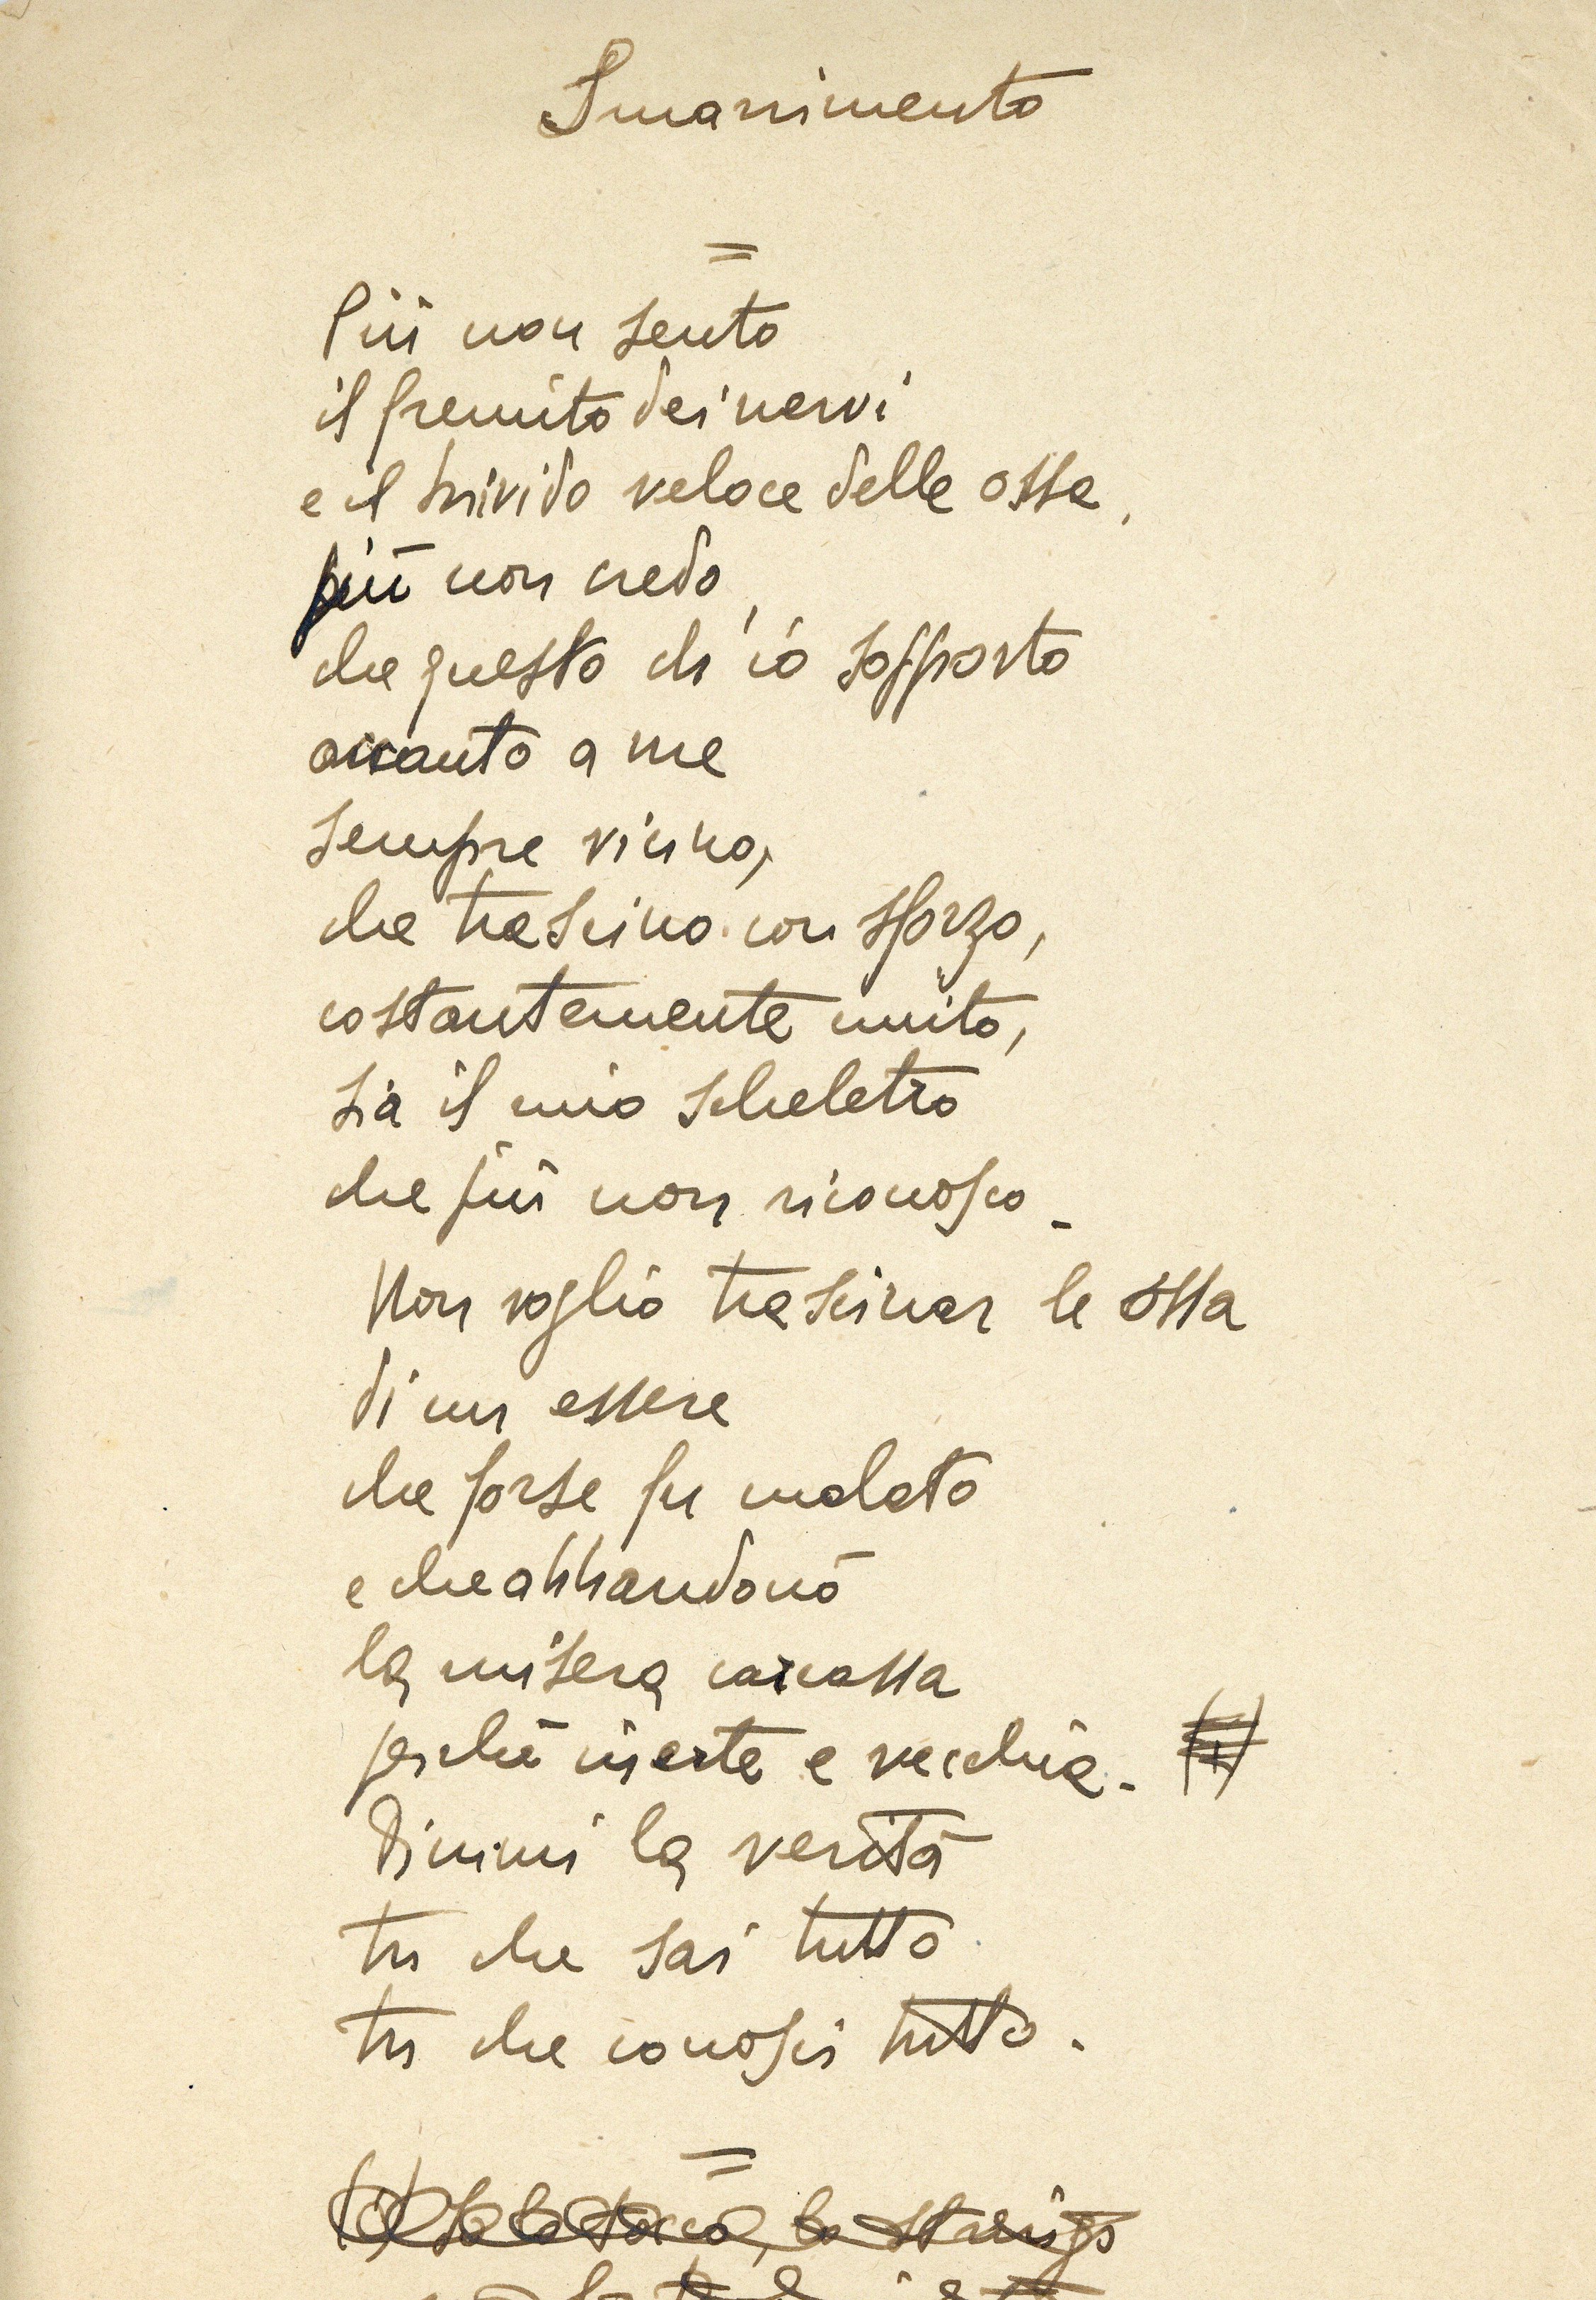 Smarrimento
=
Più non sento
il fremito dei nervi
e il brivido veloce delle ossa,
più non credo,
che questo ch'io sopporto
accanto a me
sempre vicino,
che trascino con sforzo,
costantemente unito,
sia il mio scheletro
che più non riconosco.
Non voglio trascinar le ossa
di un essere
che forse fu malato
e che abbandonò
la misera carcassa
perchè inerte e vecchia. (1)
Dimmi la verità
tu che sai tutto
tu che conosci tutto.
=
(1) Se la tocco, la stringo